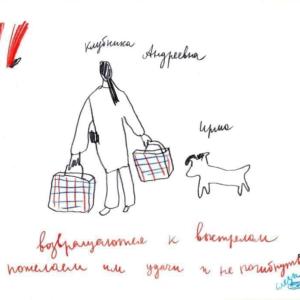 Клубника Андреевна
Ирма
возвращаются к выстрелам
пожелаем им удачи и не погибнуть